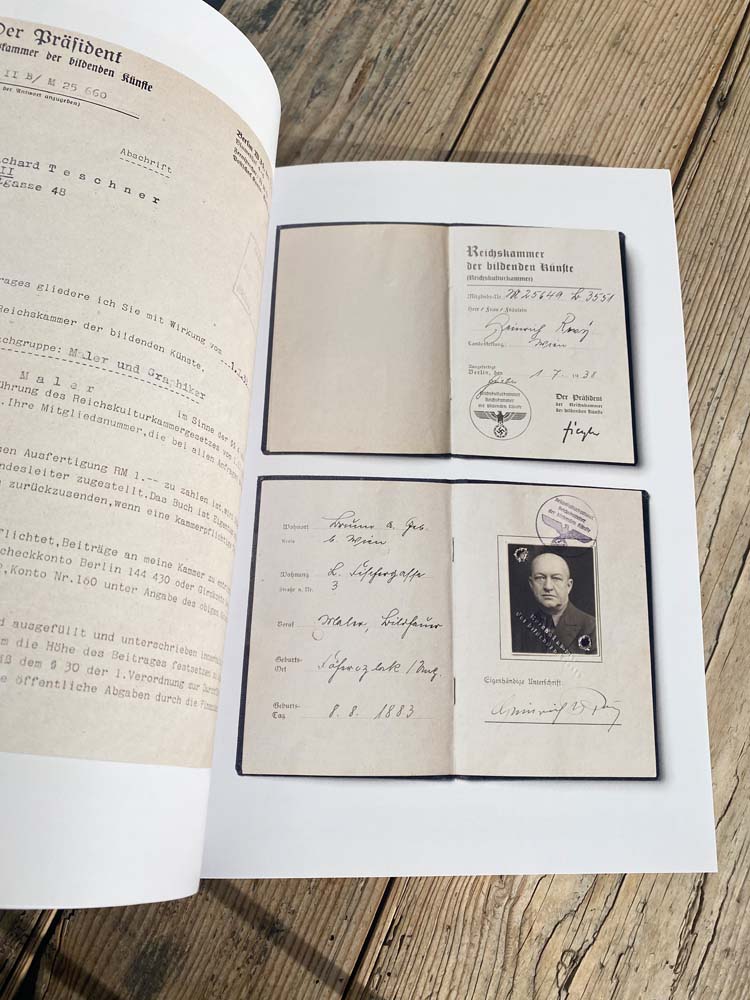 Der Präsident
kammer der bildenden Künste
II B/ M 25 660
der Antwort anzugeben)
Berlin W
Abschrift
chard Teschner
II
gasse 48
rages gliedere ich Sie mit Wirkung vom
Reichskammer der bildenden Künste,
chgruppe: Maler und Graphiker
Maler im Sinne der
ührung des Reichskulturkammergesetzes vom
.Ihre Mitgliedsnummer,die bei allen Anfragen
sen Ausfertigung RM 1.-- zu zahlen ist,
ndesleiter zugestellt.Das Buch ist
zurückzusenden,wenn eine kammerpflichtige
flichtet,Beiträge an meine Kammer zu
checkkonto Berlin 144 430 oder
,Konto Nr.160 unter Angabe des obigen
d ausgefüllt und unterschrieben
m die Höhe des Beitrages festsetzen
ß dem § 30 der 1.Verordnung zur
e öffentliche Abgaben durch die
Reichskammer
der bildenden Künste
(Reichskulturkammer)
Mitglieds-Nr. M 25649
Herr / Frau / Fräulein
Heinrich
Landesleitung: Wien
Ausgefertigt
Berlin, den 1. 7. 1938
Reichskulturkammer
Reichskammer
der bildenden Künste
Der Präsident
der Reichskammer
der bildenden Künste
Ziegler
Wohnort Brunn a. Geb.
Kreis b. Wien
Wohnung L. Fischergasse
Straße u. Nr. 3
Beruf Maler, Bildhauer
Geburts-
Ort
Geburts-
Tag 8. 8. 1883
der bildenden Künste
Eigenhändige Unterschrift:
Heinrich